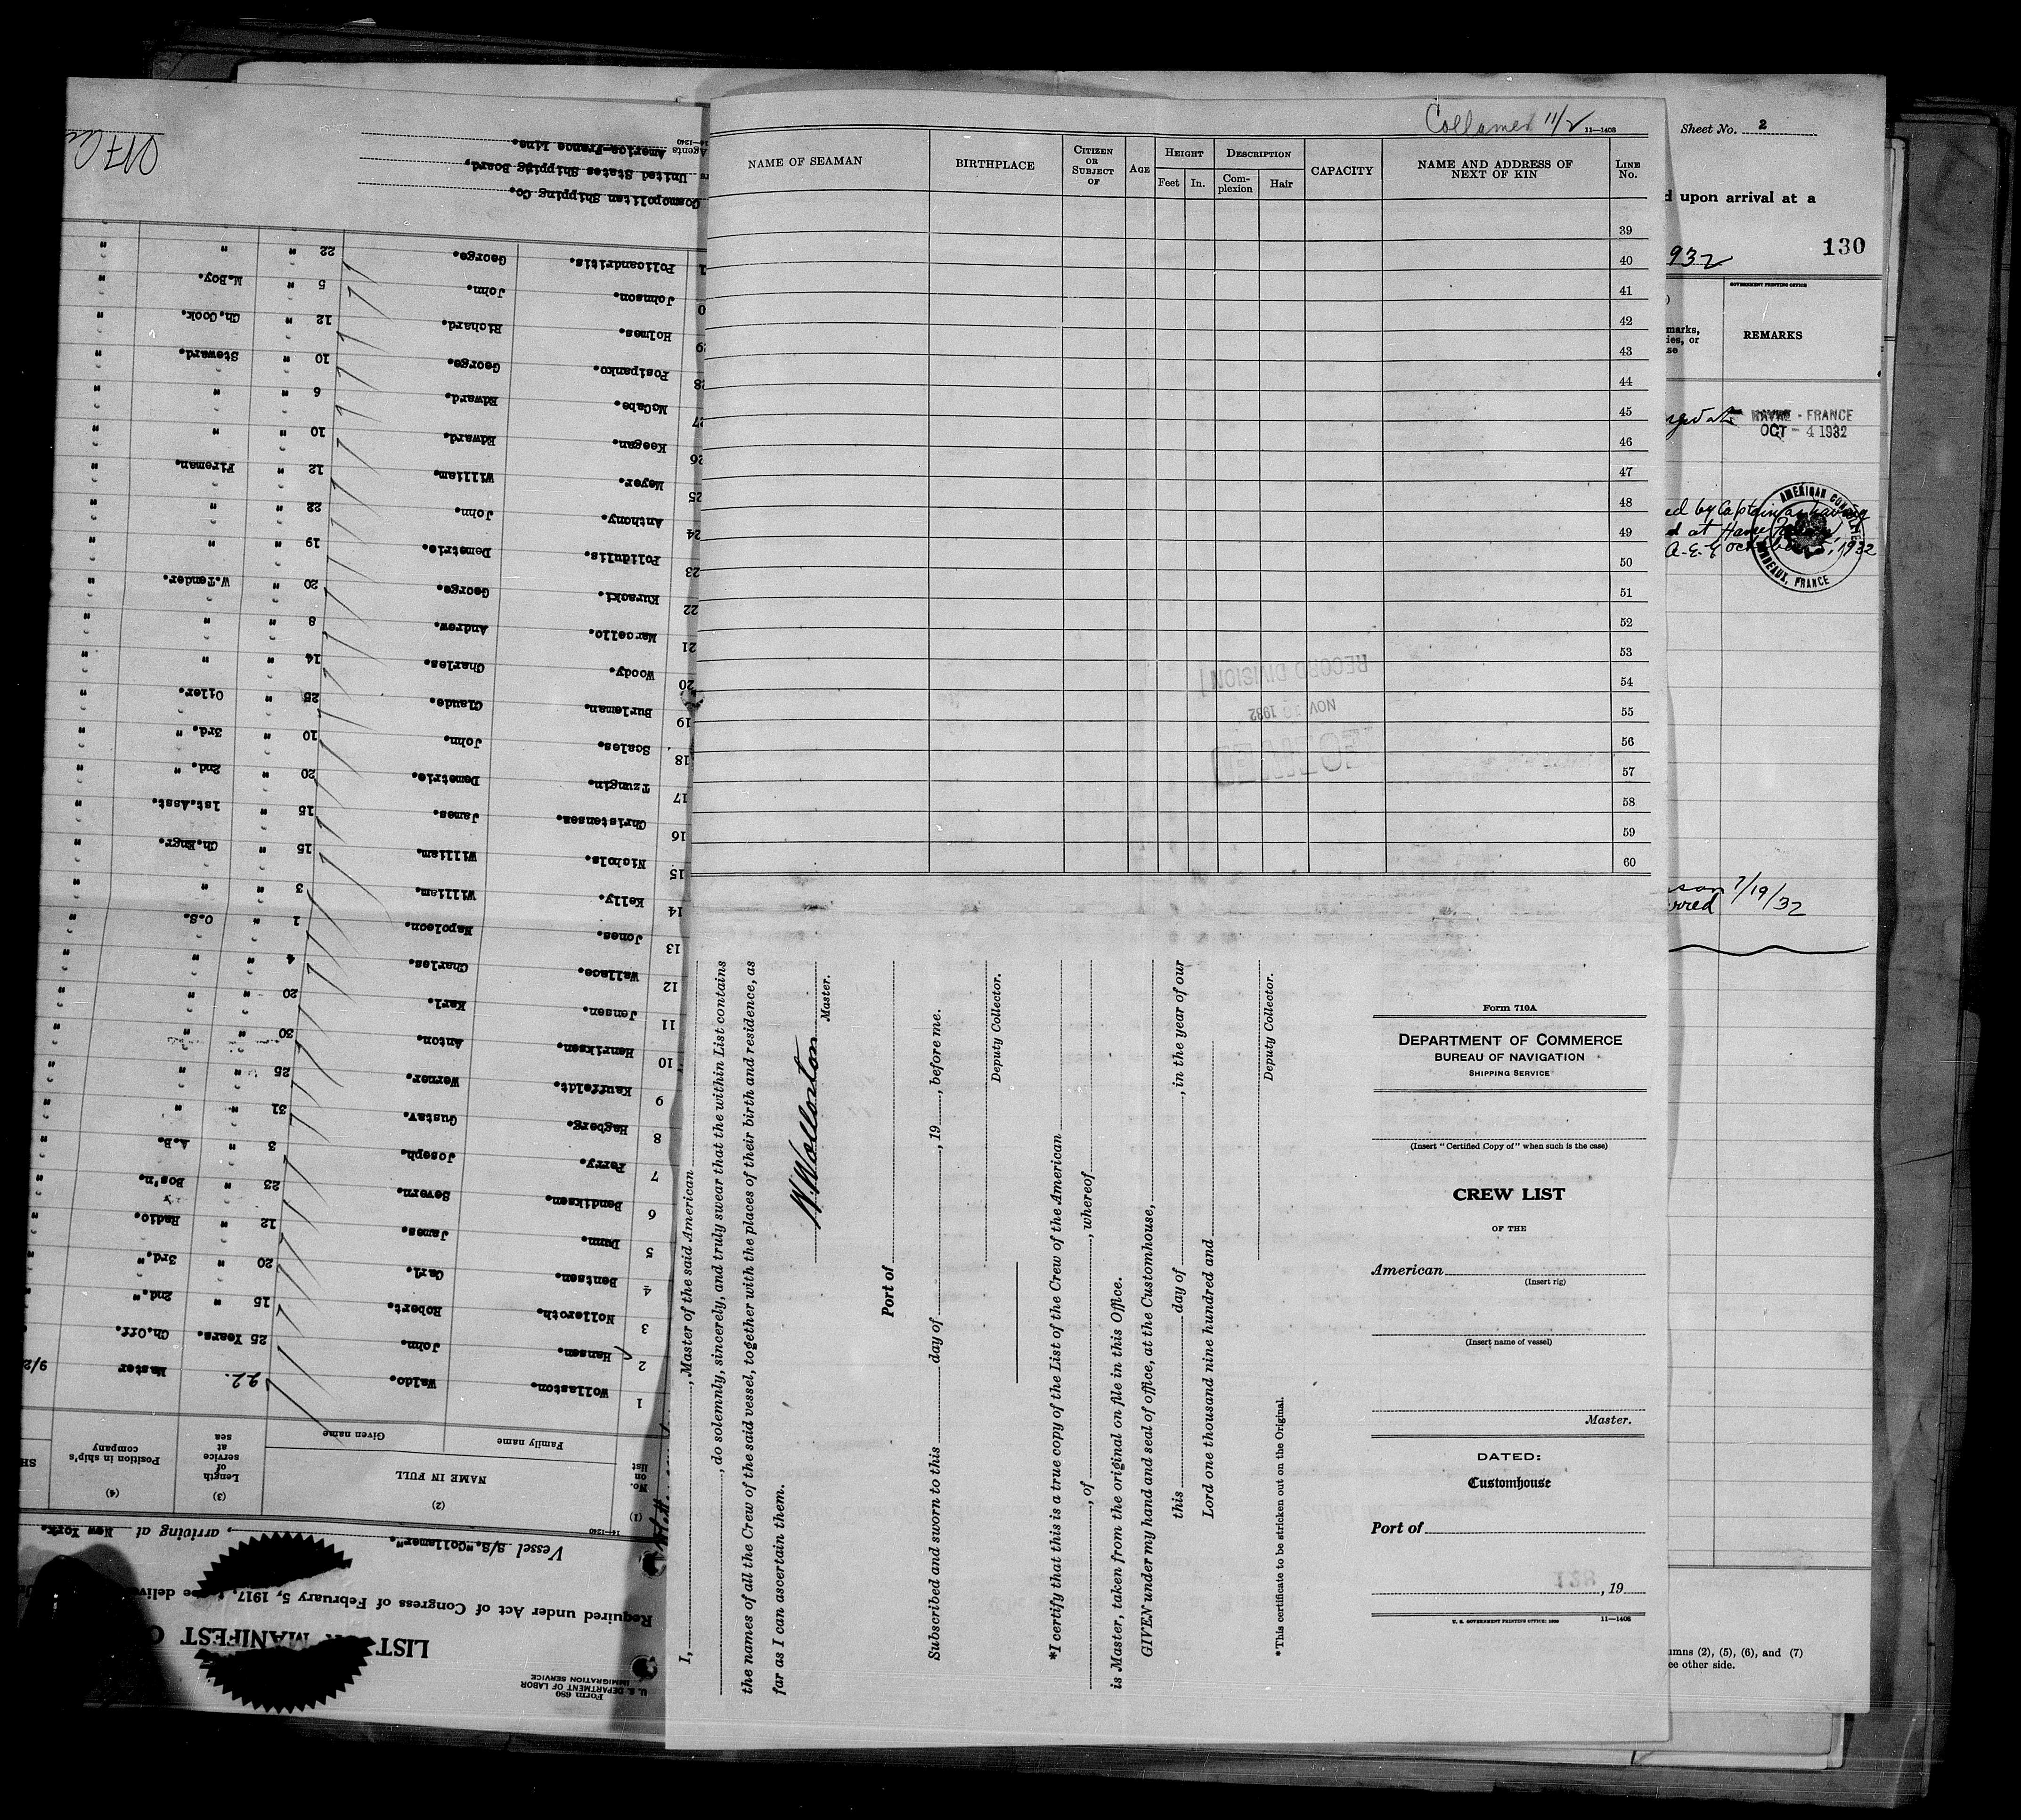 Collamer 11/2
11—1408
NAME OF SEAMAN
BIRTHPLACE
CITIZEN OR SUBJECT OF
AGE
HEIGHT
Feet
In.
DESCRIPTION
Com-plexion
Hair
CAPACITY
NAME AND ADDRESS OF NEXT OF KIN
LINE No.
39
40
41
42
43
44
45
46
47
48
49
50
51
52
53
54
55
56
57
58
59
60
RECORD DIVISION
NOV 1932
I, , Master of the said American
, do solemnly, sincerely, and truly swear that the within List contains
the names of all the Crew of the said vessel, together with the places of their birth and residence, as
far as I can ascertain them.
Master.
Port of
Subscribed and sworn to this day of , 19 , before me.
Deputy Collector.
*I certify that this is a true copy of the List of the Crew of the American
, of , whereof
is Master, taken from the original on file in this Office.
GIVEN under my hand and seal of office, at the Customhouse,
this day of , in the year of our
Lord one thousand nine hundred and
Deputy Collector.
*This certificate to be stricken out on the Original.
Form 710A
DEPARTMENT OF COMMERCE
BUREAU OF NAVIGATION
SHIPPING SERVICE
(Insert "Certified Copy of" when such is the case)
CREW LIST
OF THE
American
(Insert rig)
(Insert name of vessel)
Master.
DATED:
Customhouse
Port of
, 19
U. S. GOVERNMENT PRINTING OFFICE: 1930
11—1408
Sheet No. 2
d upon arrival at a
932
130
GOVERNMENT PRINTING OFFICE
marks,
ies, or
se
REMARKS
HAVRE - FRANCE
OCT - 4 1932
ed by Captain as having
d at Havre
1932
AMERICAN CONSULATE
BORDEAUX, FRANCE
7/19/32
umns (2), (5), (6), and (7)
ee other side.
Form 680
U. S. DEPARTMENT OF LABOR
IMMIGRATION SERVICE
LIST OR MANIFEST O
Required under Act of Congress of February 5, 1917, to be deliver
Vessel S/S."Collamer". , arriving at New York.
14—1240
(1) No. on list
(2) NAME IN FULL
Family name
Given name
(3) Length of service at sea
(4) Position in ship's company
1 Wollaston. Waldo. 22. Master 9/2
2 Hansen. John. 25 Years. Ch.Off.
3 Nolleroth. Robert. 15 " 2nd."
4 Bentsen. Carl. 20 " 3rd."
5 Dunn. James. 12 " Radio.
6 Bendiksen. Severn. 23 " Bos'n.
7 Perry. Joseph. 3 " A.B.
8 Hagberg. Gustav. 31 " "
9 Kauffeldt. Werner. 25 " "
10 Henriksen. Anton. 30 " "
11 Jensen. Karl. 20 " "
12 Wallace. Charles. 4 " "
13 Jones. Napoleon. 1 " O.S.
14 Kelly. William. 3 " "
15 Nichols. William. 15 " Ch.Engr.
16 Christensen. James. 15 " 1st.Asst.
17 Tzungin. Demetrie. 20 " 2nd. "
18 Scales. John. 10 " 3rd. "
19 Burleman. Claude. 25 " Oiler.
20 Woody. Charles. 14 " "
21 Marcello. Andrew. 8 " "
22 Kuracki. George. 20 " W.Tender.
23 Polidulis. Demetrie. 19 " "
24 Anthony. John. 22 " "
25 Meyer. William. 12 " Fireman.
26 Keegan. Edward. 10 " "
27 McCabe. Edward. 6 " "
28 Posipanko. George. 10 " Steward.
29 Holmes. Richard. 12 " Ch.Cook.
0 Johnson. John. 5 " M.Boy.
1 Policandritis. George. 22 " "
Cosmopolitan Shipping Co.
rs United States Shipping Board,
Agents America-France Line.
14—1240